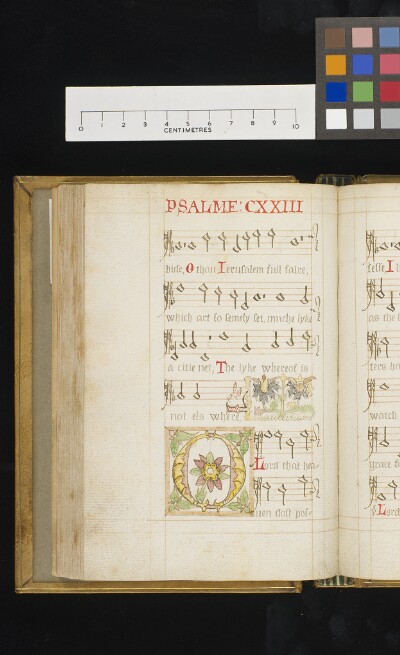 0 1 2 3 4 5 6 7 8 9 10
CENTIMETRES
PSALME: CXXIII
bise, O thou Ierusalem full faire,
which art so semely set, muche lyke
a citie net, The lyke whereof is
not els where.
O Lord that hea-
uen dost pos-
selfe I
as the
ters ha
watch
grace fr
Lord